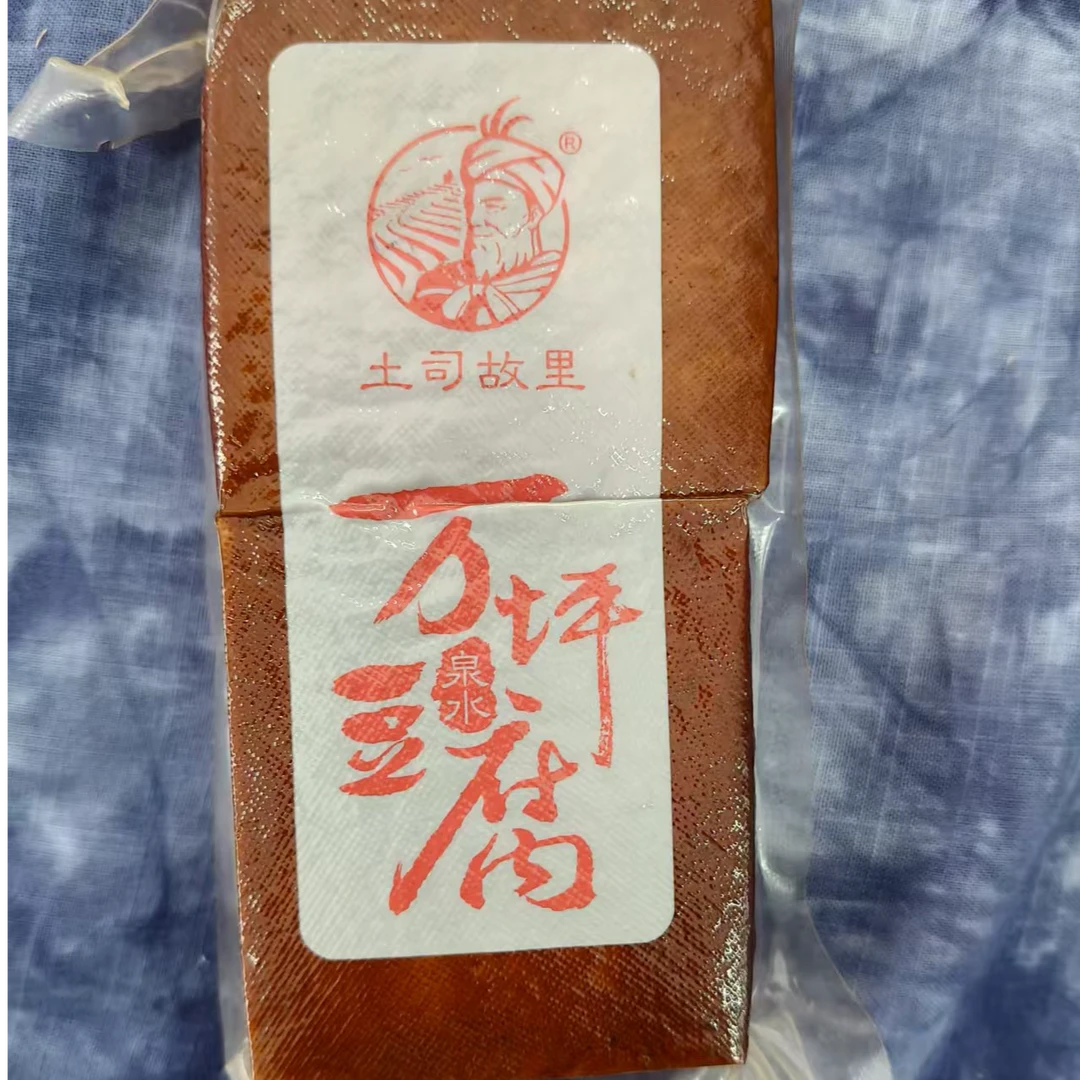 ®
土司故里
万坪
泉水
豆腐